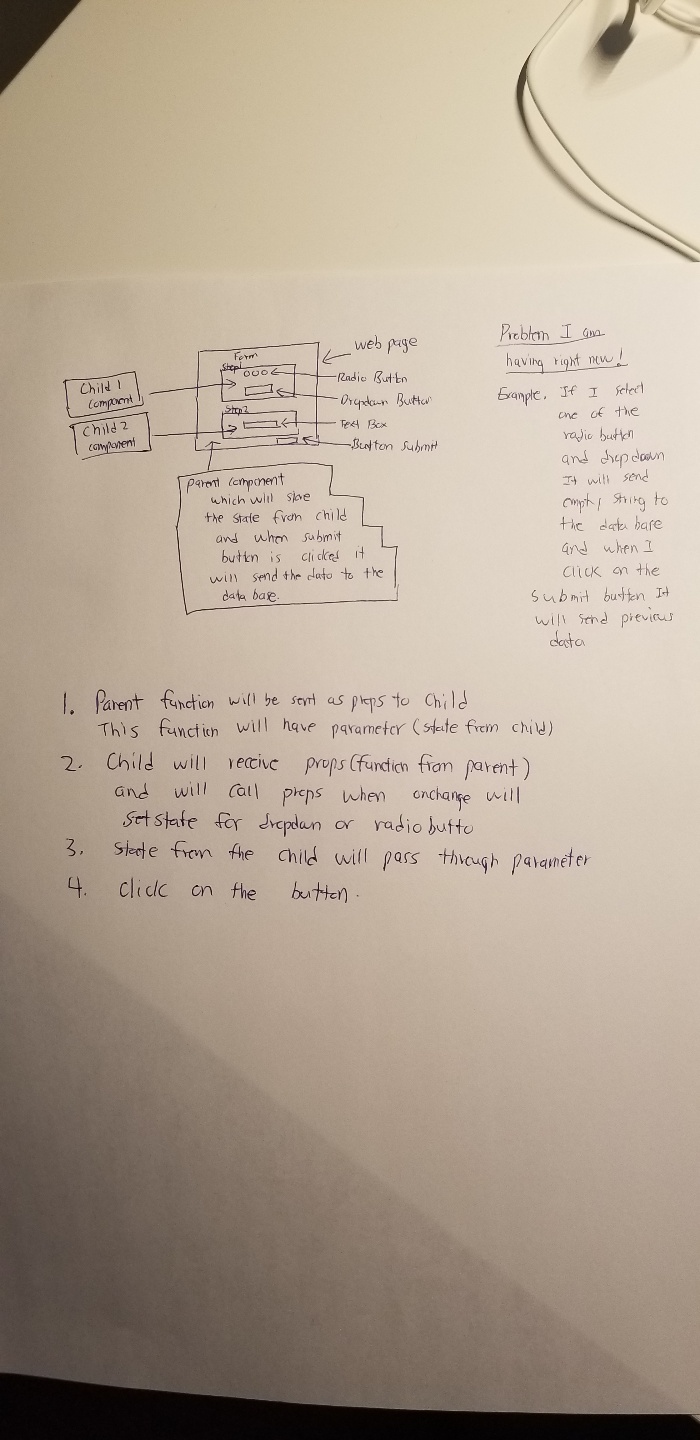 Form
Step1
Step2
web page
Radio Button
Dropdown Button
Text Box
Button Submit
Child 1
component
Child 2
component
Parent component
which will save
the state from child
and when submit
button is clicked it
will send the data to the
data base.
Problem I am
having right now!
Example. If I select
one of the
radio button
and dropdown
It will send
empty string to
the data base
and when I
click on the
submit button It
will send previous
data
1. Parent function will be sent as props to child
This function will have parameter (state from child)
2. Child will receive props (function from parent)
and will call props when onchange will
setstate for dropdown or radio butto
3. State from the child will pass through parameter
4. click on the button.